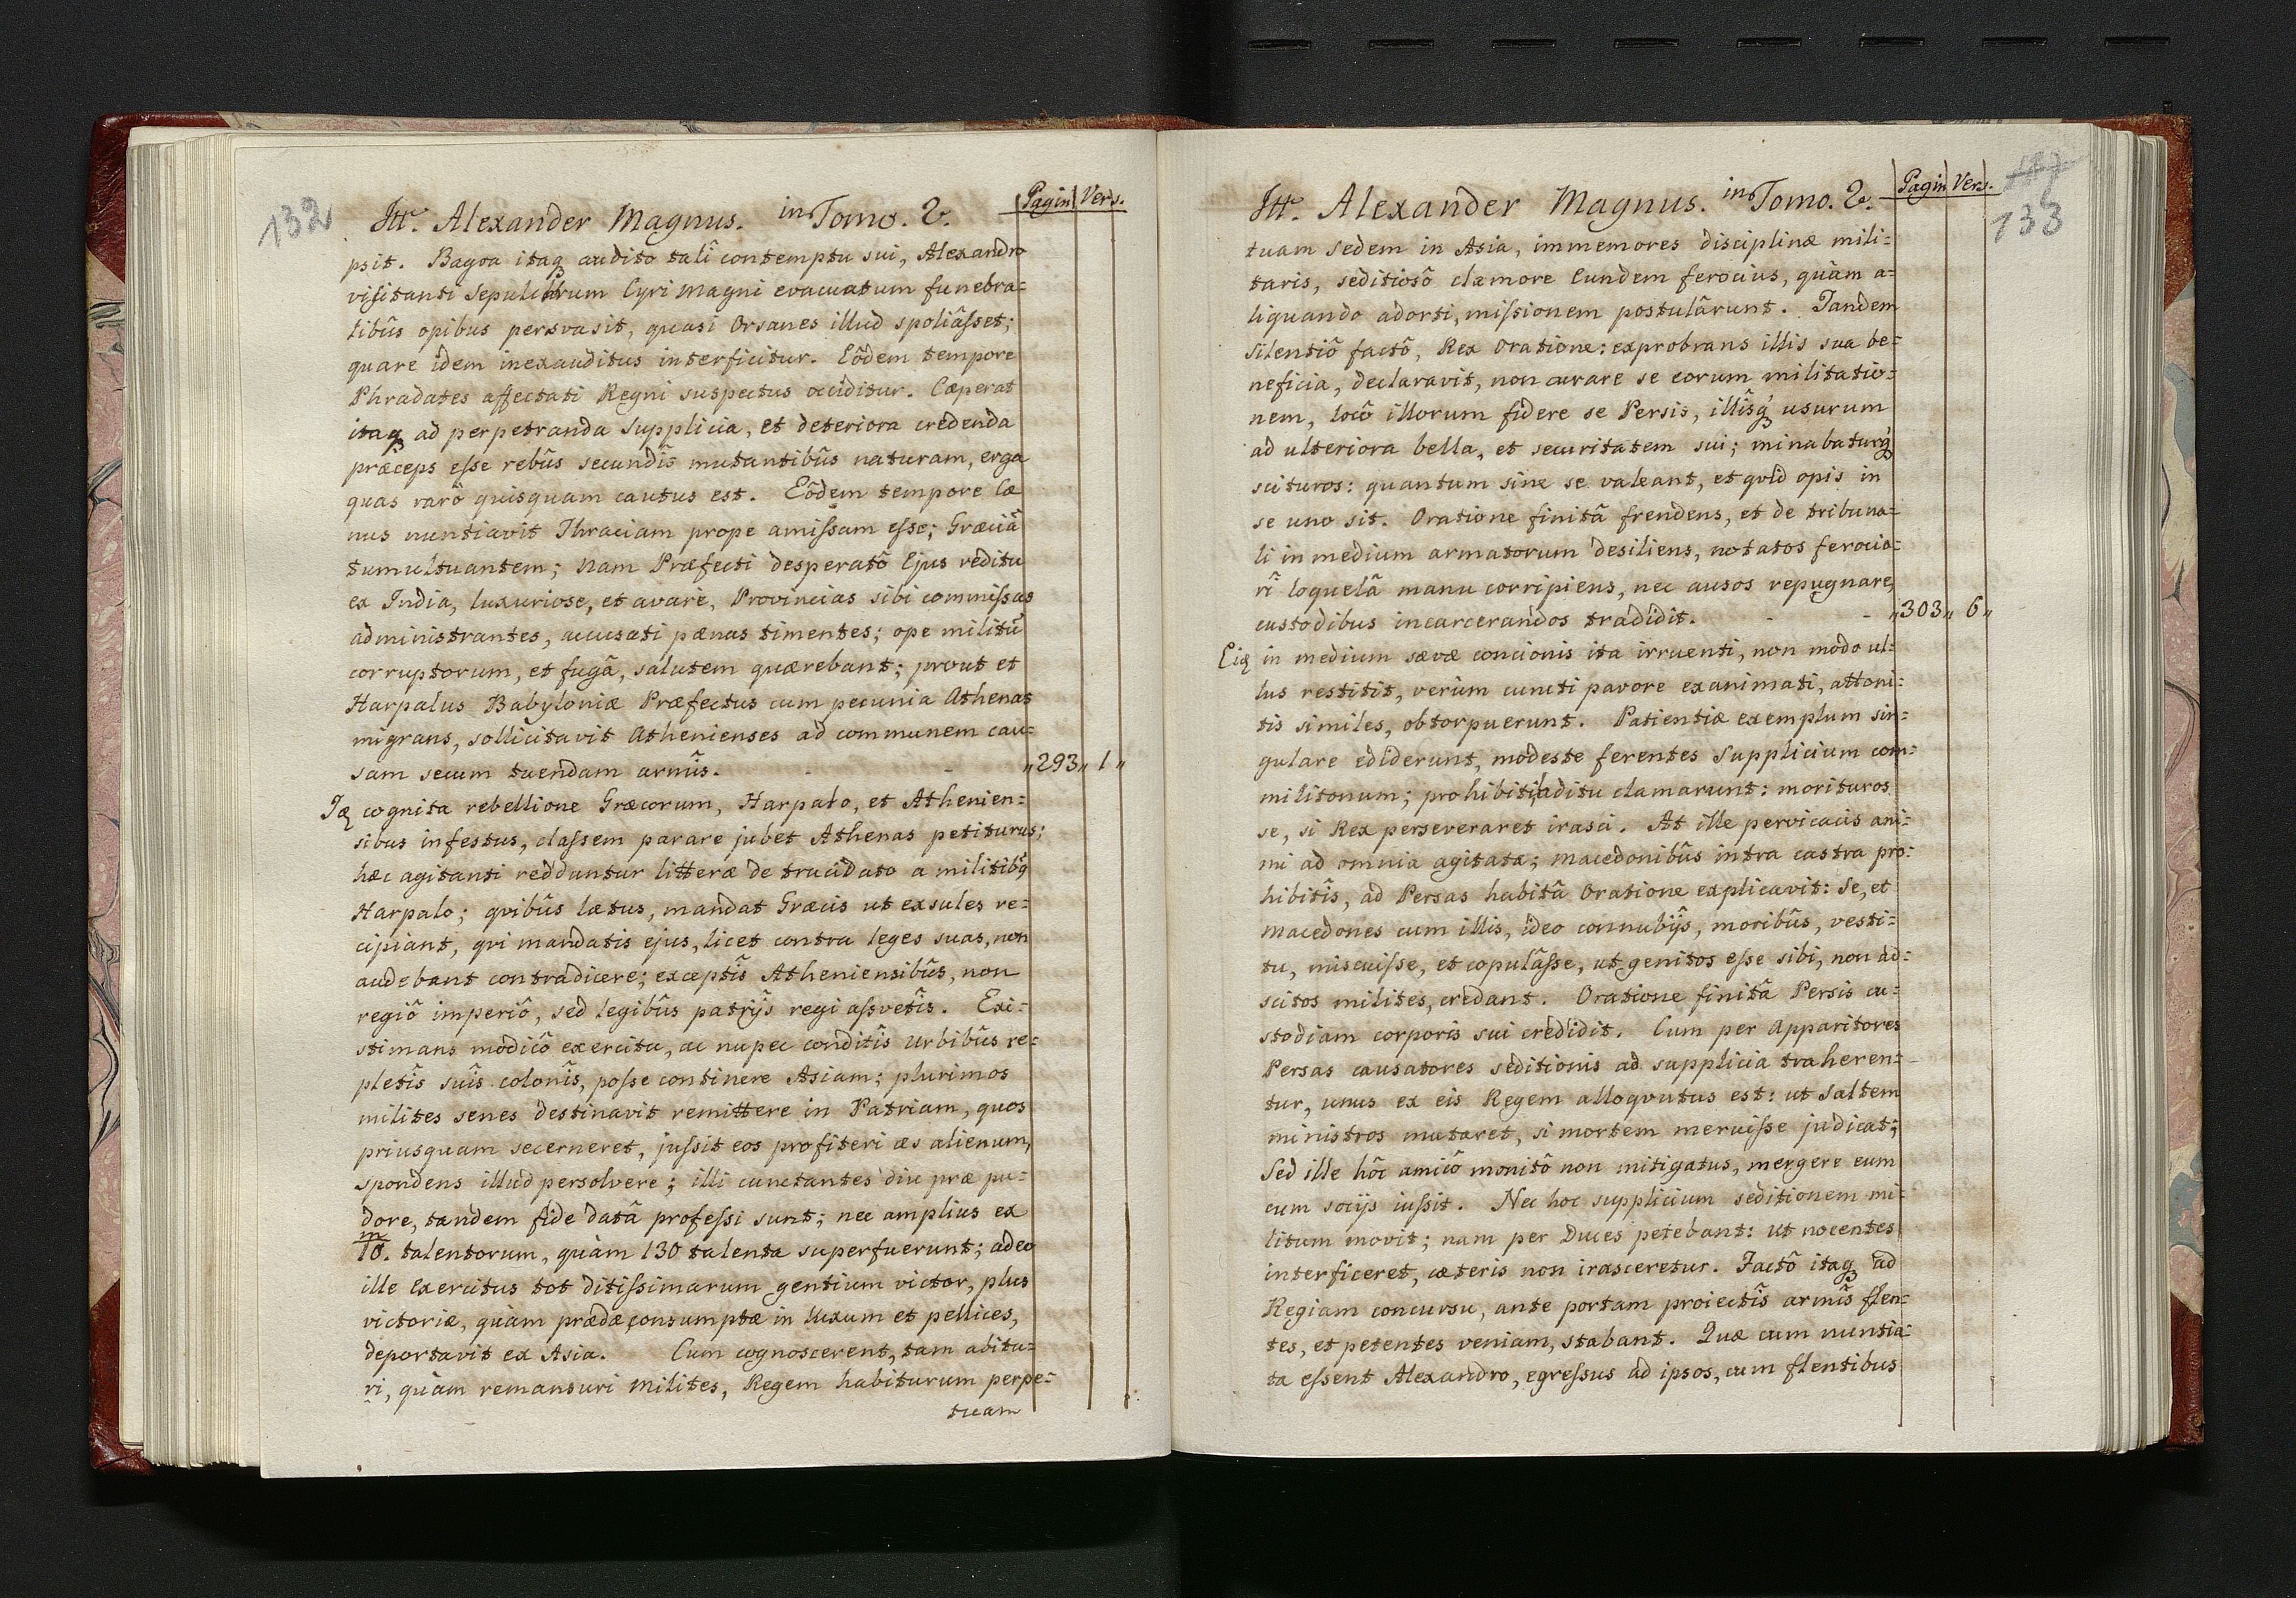 132
Itt. Alexander Magnus. in Tomo. 2. Pagin Vers.
psit. Bagoa itaq audito talî contemptu sui, Alexandro
visitanti sepulchrum Cyri Magni evacuatum funebra=
libûs opibus persvasit, quasi Orsanes illud spoliâsset;
quare idem inexauditus interficitur. Eôdem tempore
Phradates affectati Regni suspectus occiditur. Cæperat
itaq ad perpetranda supplicia, et deteriora credenda
præceps esse rebûs secundis mutantibûs naturam, erga
quas rarô quisquam cautus est. Eôdem tempore Cæ
nus nuntiavit Thraciam prope amissam esse; Græciā
tumultuantem; nam Præfecti desperatô Ejus reditu
ex India, luxuriose, et avare, Provincias sibi commissas
administrantes, accusati pænas timentes; ope militū
corruptorum, et fugâ, salutem quærebant; prout et
Harpalus Babyloniæ Præfectus cum pecunia Athenas
migrans, sollicitavit Athenienses ad communem cau=
sam secum tuendam armîs. - - „293„ 1„
Iq cognita rebellione Græcorum, Harpalo, et Athenien=
sibus infestus, classem parare jubet Athenas petiturus;
hæc agitanti redduntur litteræ de trucidato a militibq
Harpalo; qvibûs lætus, mandat Græcis ut exsules re=
cipiant, qvi mandatis ejus, licet contra leges suas, non
audebant contradicere; exceptîs Atheniensibûs, non
regiô imperiô, sed legibûs patrijs regi assvetîs. Exi=
stimans modicô exercitu, ac nupec conditîs urbibûs re=
pletîs suîs colonîs, posse continere Asiam; plurimos
milites senes destinavit remittere in Patriam, quos
priusquam secerneret, jussit eos profiteri æs alienum,
spondens illud persolvere; illi cunctantes diu præ pu=
dore, tandem fide datâ professi sunt; nec amplius ex
m
10. talentorum, quàm 130 talenta superfuerunt; adeo
ille Exercitus tot ditissimarum gentium victor, plus
victoriæ, quàm prædæ, consumptæ in luxum et pellices,
deportavit ex Asia. Cum cognoscerent, tam abitu=
ri, quàm remansuri milites, Regem habiturum perpe=
tuam
133
Itt. Alexander Magnus. in Tomo. 2. Pagin Vers.
tuam sedem in Asia, immemores disciplinæ mili=
taris, seditiosô clamore Eundem ferocius, quàm a=
liquando adorti, missionem postulârunt. Tandem
silentiô factô, Rex Oratione: exprobrans illis sua be=
neficia, declaravit, non curare se eorum militatio=
nem, locô illorum fidere se Persis, illîsq usurum
ad ulteriora bella, et securitatem sui; minabaturq
scituros: quantum sine se valeant, et qvid opis in
se uno sit. Oratione finitâ frendens, et de tribuna=
li in medium armatorum desiliens, notatos ferocio=
rî loquelâ manu corripiens, nec ausos repugnare,
custodibus incarcerandos tradidit. - - „303„ 6„
Eiq in medium sævæ concionis ita irruenti, non modo ul=
lus restitit, verùm cuncti pavore exanimati, attoni=
tis similes, obtorpuerunt. Patientiæ exemplum sin=
gulare ediderunt, modeste ferentes supplicium com=
militonum; prohibiti aditu clamarunt: morituros
se, si Rex perseveraret irasci. At ille pervicacis ani=
mi ad omnia agitata; Macedonibûs intra castra pro=
hibitîs, ad Persas habitâ Oratione explicavit: Se, et
Macedones cum illis, ideo connubijs, moribûs, vesti=
tu, miscuisse, et copulâsse, ut genitos esse sibi, non ad=
scitos milites, credant. Oratione finitâ Persis cu=
stodiam corporis sui credidit. Cum per Apparitores
Persas causatores seditionis ad supplicia traheren=
tur, unus ex eis Regem alloqvutus est: ut saltem
ministros mutaret, si mortem meruisse judicat;
Sed ille hôc amicô monitô non mitigatus, mergere eum
cum socijs iussit. Nec hoc supplicium seditionem mi=
litum movit; nam per Duces petebant: ut nocentes
interficeret, cæteris non irasceretur. Factô itaq ad
Regiam concursu, ante portam proiectîs armîs flen=
tes, et petentes veniam, stabant. Quæ cum nuntia=
ta essent Alexandro, egressus ad ipsos, cum flentibus